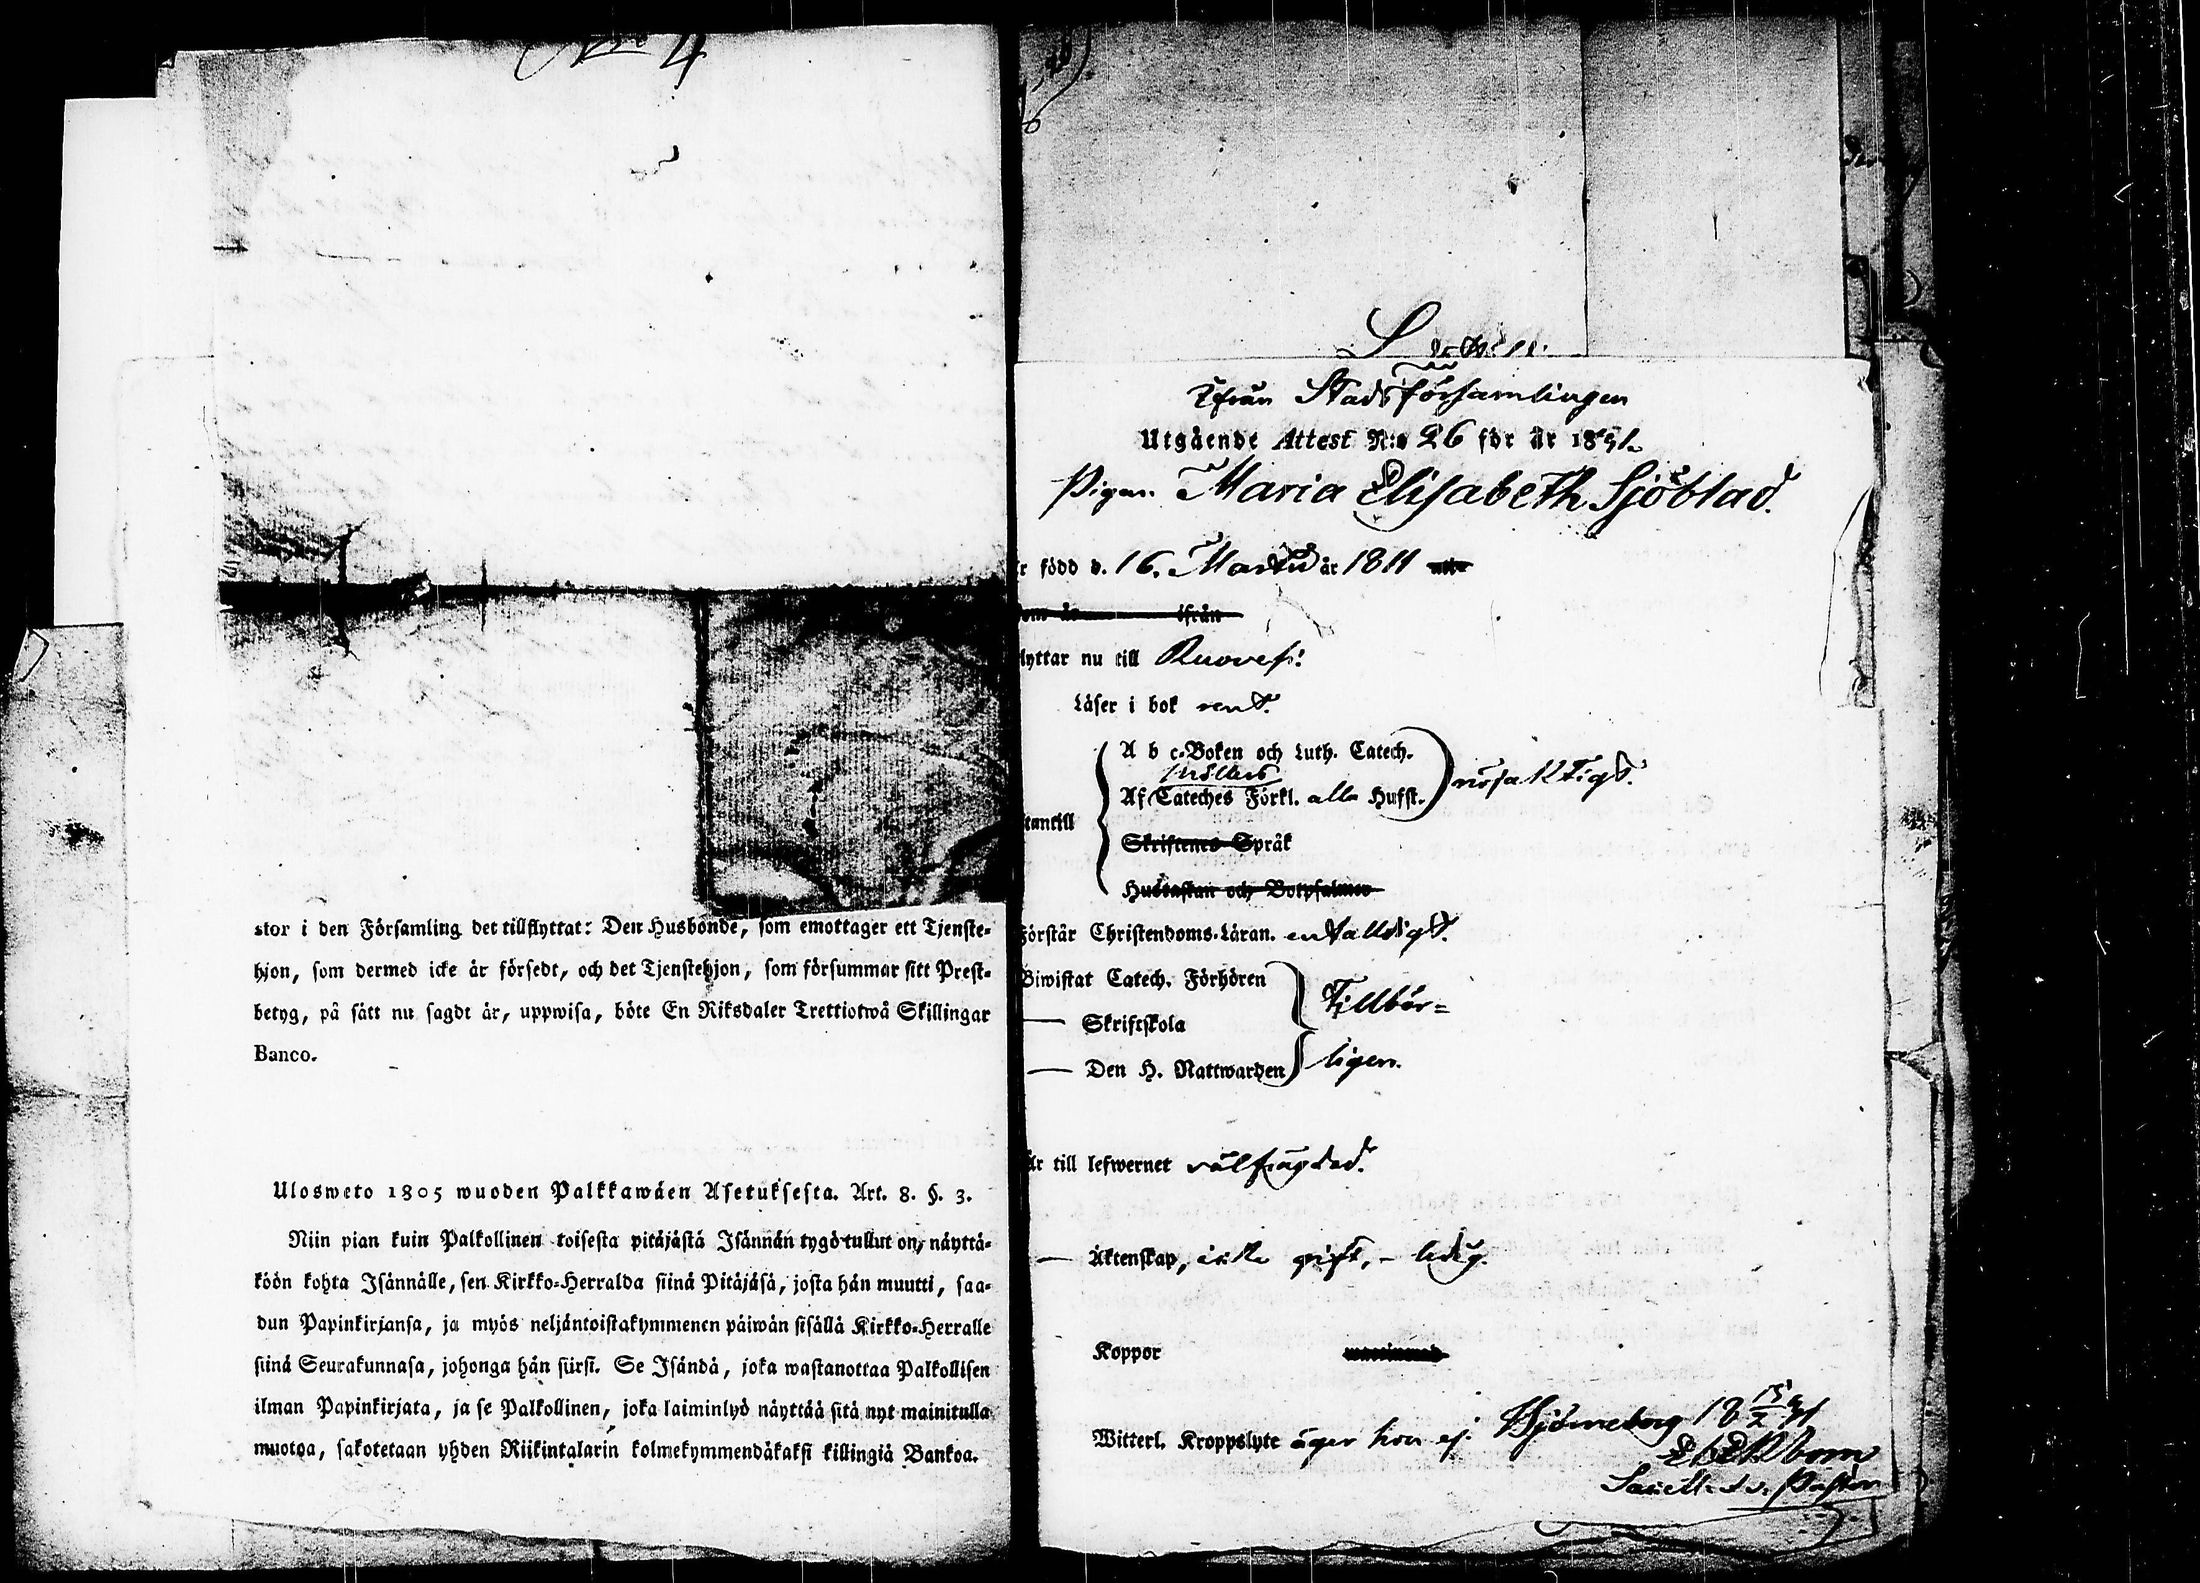 N:o 4
stor i den Församling det tillflyttat: Den Husbonde, som emottager ett Tjenste-
hjon, som dermed icke är försedt, och det Tjenstehjon, som försummar sitt Prest-
betyg, på sätt nu sagdt är, uppwisa, böte En Riksdaler Trettiotwå Skillingar
Banco.
Ulosweto 1805 wuoden Palkkawäen Asetuksesta. Art. 8. §. 3.
Niin pian kuin Palkollinen toisesta pitäjästä Isännän tygö tullut on, näyttä-
köön kohta Isännälle, sen Kirkko-Herralda siinä Pitäjäsä, josta hän muutti, saa-
dun Papinkirjansa, ja myös neljäntoistakymmenen päiwän sisällä Kirkko-Herralle
siinä Seurakunnasa, johonga hän siirsi. Se Isändä, joka wastanottaa Palkollisen
ilman Papinkirjata, ja se Palkollinen, joka laiminlyö näyttää sitä nyt mainitulla
muotoa, sakotetaan yhden Riikintalarin kolmekymmendäkaksi killingiä Bankoa.
Ifrån Stadsförsamlingen
Utgående Attest N:o 26 för år 1831
Pigan Maria Elisabeth Sjöblad.
r född d. 16. Martii år 1811
om år ifrån
lyttar nu till Ruovesi
Läser i bok rent.
A b c-Boken och Luth. Catech.
Möllers
Af Cateches Förkl. alla Hufst. nöjaktigt.
tantill
Skriftenes Språk
Hustaflan och Botpsalmer
Förstår Christendoms-Läran. enfalldigt.
Biwistat Catech. Förhören
Tillbör-
— Skriftskola
— Den H. Nattwarden ligen.
Är till lefwernet välfrägdad.
— Äktenskap, icke gift, - ledig.
Koppor
Witterl. Kroppslyte äger hon ej. Björneborg 18 15/2 31
Ekbom
Pastor